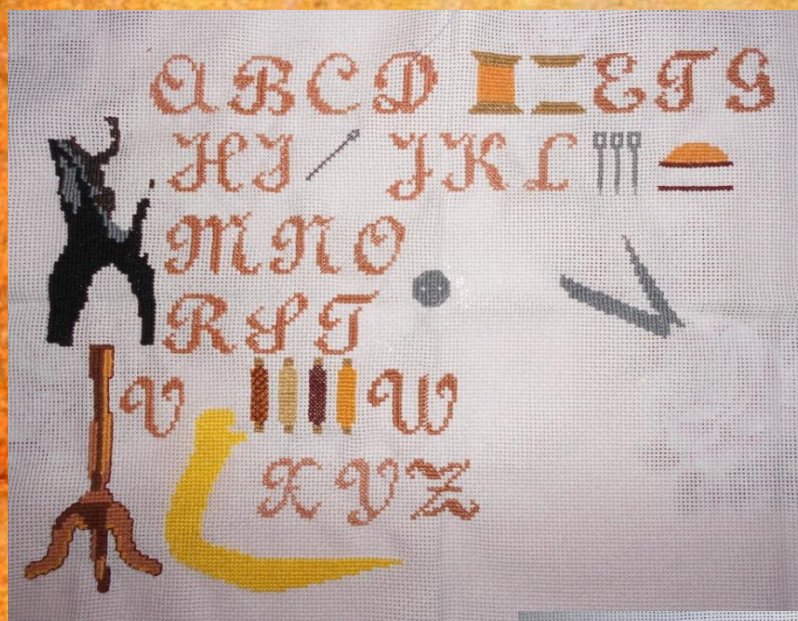 A B C D E F G
H I J K L
M N O
R S T
V W
X Y Z